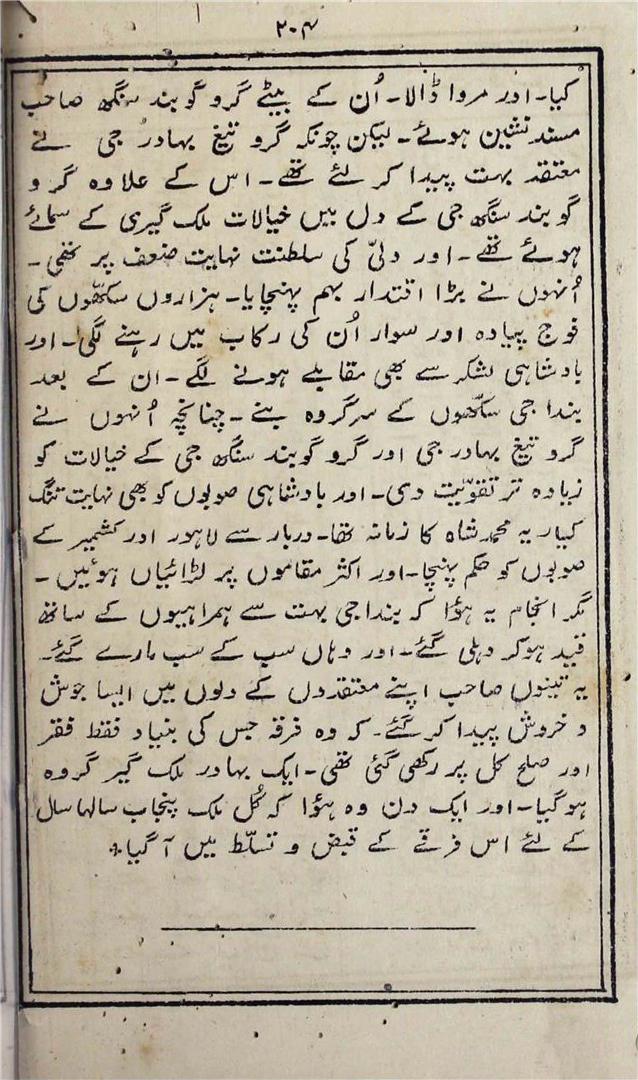 ۲۰۴
کیا۔ اور مروا ڈالا۔ اُن کے بیٹے گرو گوبند سنگھ صاحب
مسند نشین ہوئے۔ لیکن چونکہ گرو تیغ بہادر جی نے
معتقد بہت پیدا کر لئے تھے۔ اس کے علاوہ گرو
گوبند سنگھ جی کے دل میں خیالات ملک گیری کے سمائے
ہوئے تھے۔ اور دلّی کی سلطنت نہایت ضعف پر تھی۔
اُنہوں نے بڑا اقتدار بہم پہنچایا۔ ہزاروں سکھّوں کی
فوج پیادہ اور سوار اُن کی رکاب میں رہنے لگی۔ اور
بادشاہی لشکر سے بھی مقابلے ہونے لگے۔ ان کے بعد
بندا جی سکھّوں کے سرگروہ بنے۔ چنانچہ اُنہوں نے
گرو تیغ بہادر جی اور گرو گوبند سنگھ جی کے خیالات کو
زیادہ تر تقویّت دی۔ اور بادشاہی صوبوں کو بھی نہایت تنگ
کیا۔ یہ محمد شاہ کا زمانہ تھا۔ دربار سے لاہور اور کشمیر کے
صوبوں کو حکم پہنچا۔ اور اکثر مقاموں پر لڑائیاں ہوئیں۔
مگر انجام یہ ہؤا کہ بندا جی بہت سے ہمراہیوں کے ساتھ
قید ہو کر دہلی گئے۔ اور وہاں سب کے سب مارے گئے۔
یہ تینوں صاحب اپنے معتقدوں کے دلوں میں ایسا جوش
و خروش پیدا کر گئے۔ کہ وہ فرقہ جس کی بنیاد فقط فقر
اور صلح کل پر رکھی گئی تھی۔ ایک بہادر ملک گیر گروہ
ہوگیا۔ اور ایک دن وہ ہؤا کہ کُل ملک پنجاب سالہا سال
کے لئے اس فرقے کے قبض و تسلّط میں آ گیا۔